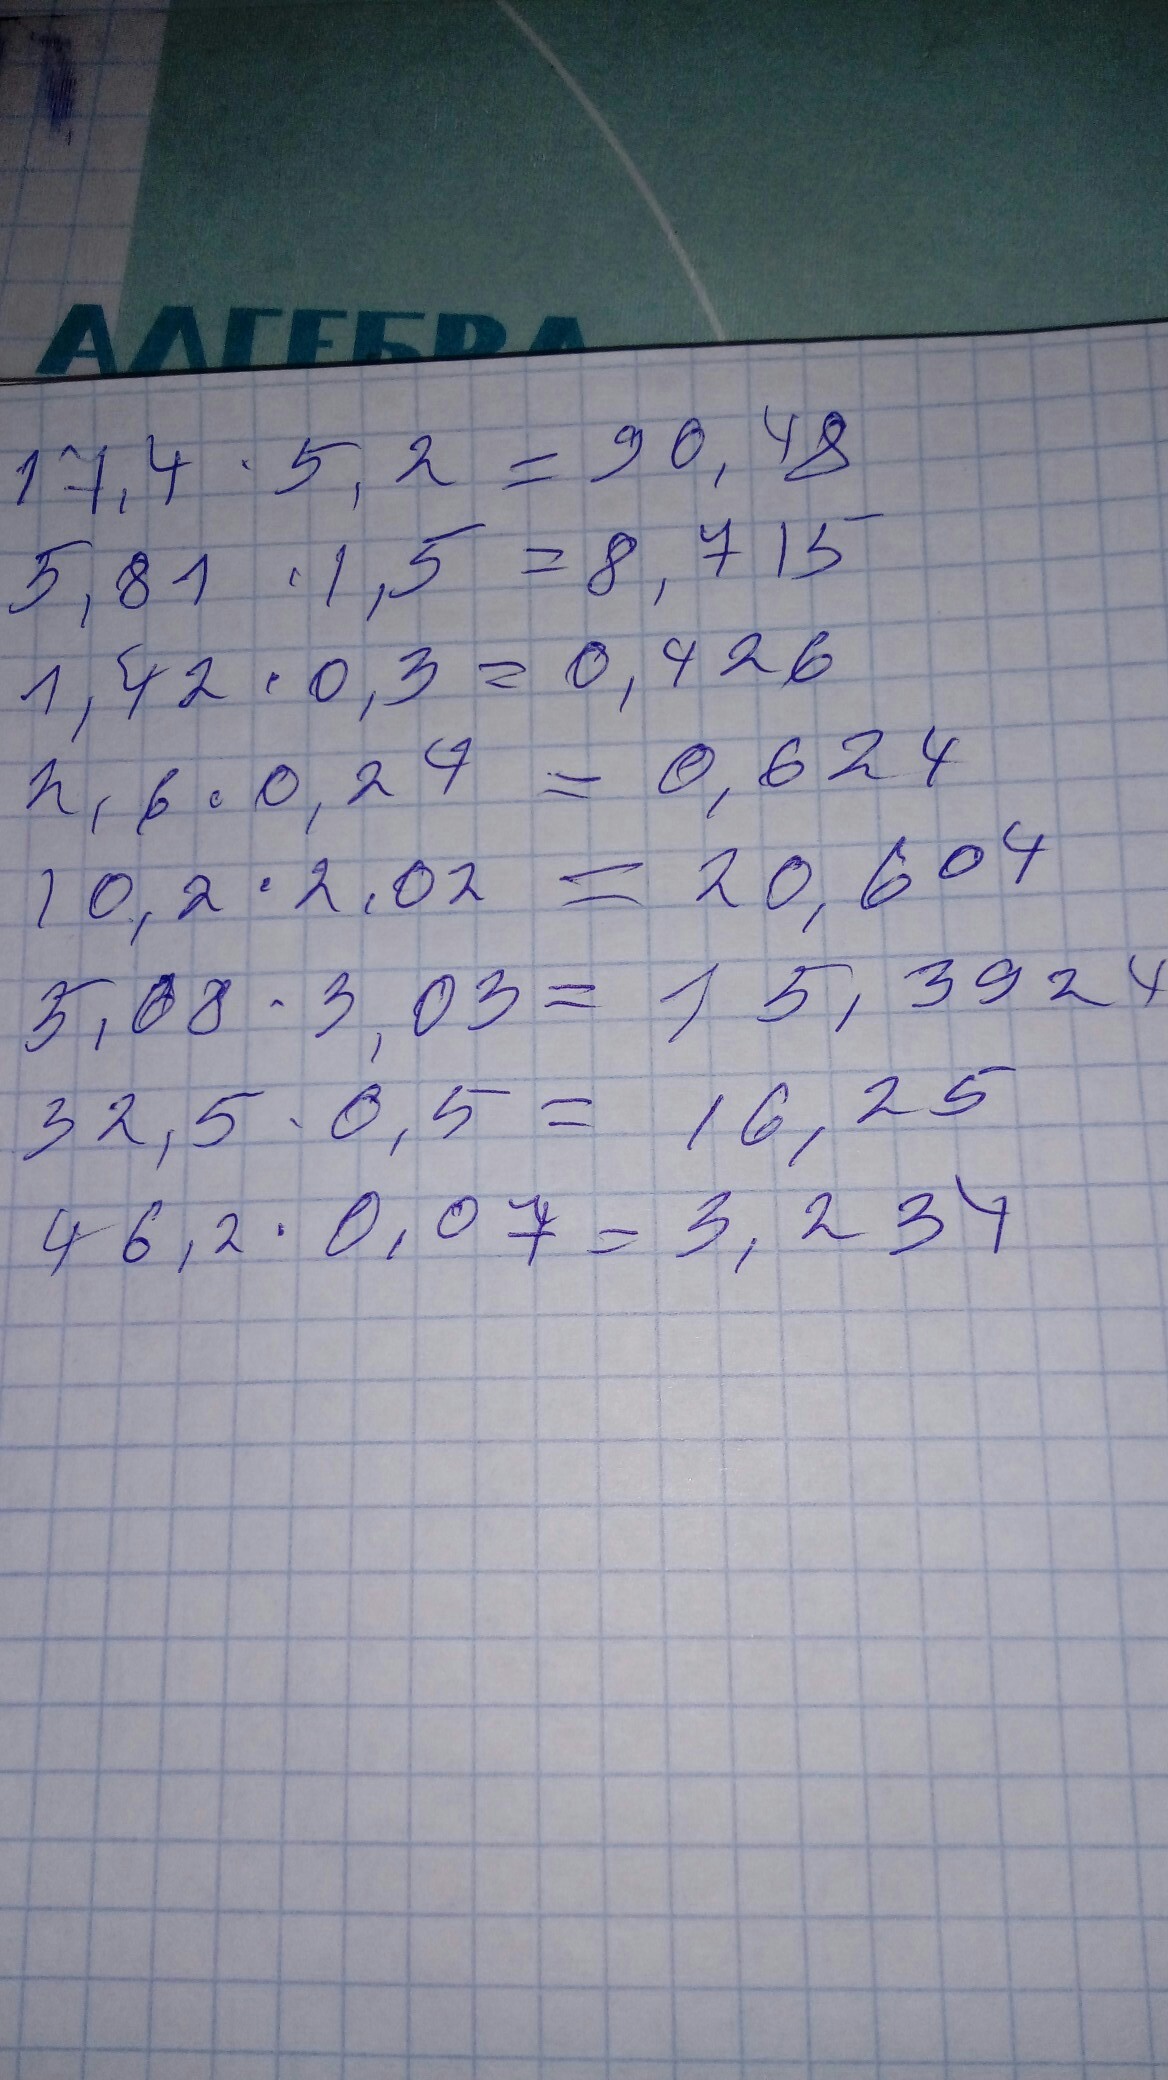 АЛГЕБРА
17,4 · 5,2 = 90,48
5,81 · 1,5 = 8,715
1,42 · 0,3 = 0,426
2,6 · 0,24 = 0,624
10,2 · 2,02 = 20,604
5,08 · 3,03 = 15,3924
32,5 · 0,5 = 16,25
46,2 · 0,07 = 3,234